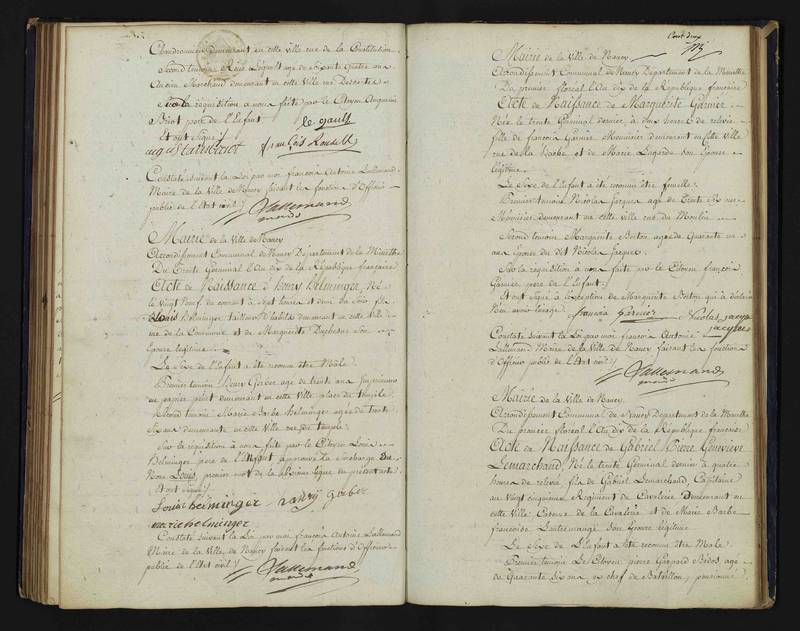 Chaudronnier demeurant en cette ville rue de la Constitution
Second temoin René Legault agé de soixante quatre ans
Ancien Marchand demeurant en cette Ville rue Descartes
Sur la réquisition a nous faite par le Citoyen Augustin
père de l'Enfant
Et ont signé /.
le gault
françois
Constaté suivant la Loi par moi françois Antoine Lallemand
Maire de la Ville de Nancy faisant les fonctions d'Officier
public de l'Etat civil /.
Lallemand
Mairie de la Ville de Nancy
Arrondissement Communal de Nancy Département de la Meurthe
Du Trente Germinal l'An dix de la République française
Acte de Naissance d'henry Helminger, Né
le Vingt Neuf du courant à sept heures et demi du soir fils
Louis Helminger tailleur d'habits demeurant en cette Ville
rue de la Commune et de Marguerite Duchesne son
Epouse légitime
Le Sexe de l'Enfant a été reconnu être Male
Premier temoin henry Gerber agé de trente ans Imprimeur
en papier peint demeurant en cette Ville place du temple
Second temoin Marie Barbe helminger agée de trente
Six ans demeurante en cette Ville rue du temple
Sur la réquisition à nous faite par le Citoyen Louis
Helminger père de l'Enfant approuvé la surcharge du
Nom Louis, premier mot de la ligne du présent acte
Et ont signé /.
Louis helminger henry gerber
marie helminger
Constaté suivant la Loi par moi françois Antoine Lallemand
Maire de la Ville de Nancy faisant les fonctions d'Officier
public de l'Etat civil /.
Lallemand
Cent deux
Mairie de la Ville de Nancy
Arrondissement Communal de Nancy Département de la Meurthe
Du premier floréal l'An dix de la République française
Acte de Naissance de Marguerite Garnier
Née le trente Germinal dernier à dix heures de relevée
fille de françois Garnier Menuisier demeurant en cette Ville
rue de la Barbe et de Marie Lagarde son Epouse
légitime
Le Sexe de l'Enfant a été reconnu être femelle
Premier temoin Nicolas Jacques agé de Trente ans
Menuisier demeurant en cette ville rue du Moulin
Second temoin Marguerite Berton agée de Quarante un
ans Epouse du dit Nicolas Jacques
Sur la requisition a nous faite par le Citoyen françois
Garnier, père de l'Enfant
Et ont signé à l'exception de Marguerite Berton qui a déclaré
n'en avoir l'usage /. francois garnier Nicolas jacques
jacques
Constaté suivant la Loi par moi françois Antoine
Lallemand Maire de la Ville de Nancy faisant les fonctions
d'Officier public de l'Etat civil /.
Lallemand
Mairie de la Ville de Nancy
Arrondissement Communal de Nancy Département de la Meurthe
Du premier floréal l'An dix de la République française
Acte de Naissance de Gabriel Pierre Genevieve
Lemarchand, Né le trente Germinal dernier à quatre
heures de relevée, fils de Gabriel Lemarchand, Capitaine
au Vingt cinquième Régiment de Cavalerie Demeurant en
cette Ville Caserne de la Cavalerie et de Marie Barbe
françoise son Epouse legitime
Le Sexe de l'Enfant a été reconnu être Male
Premier temoin Le Citoyen pierre Gaspard Bédos, agé
de Quarante Six ans ex chef de Bataillon, pensionné